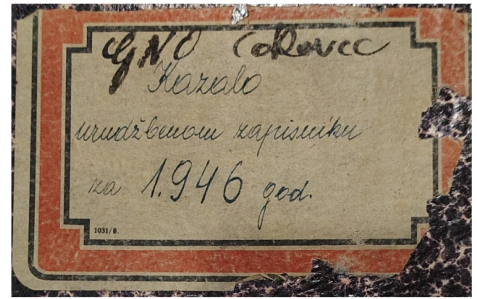 GNO Čakovec
Kazalo
urudžbenom zapisniku
za 1.946 god.
1031/8.